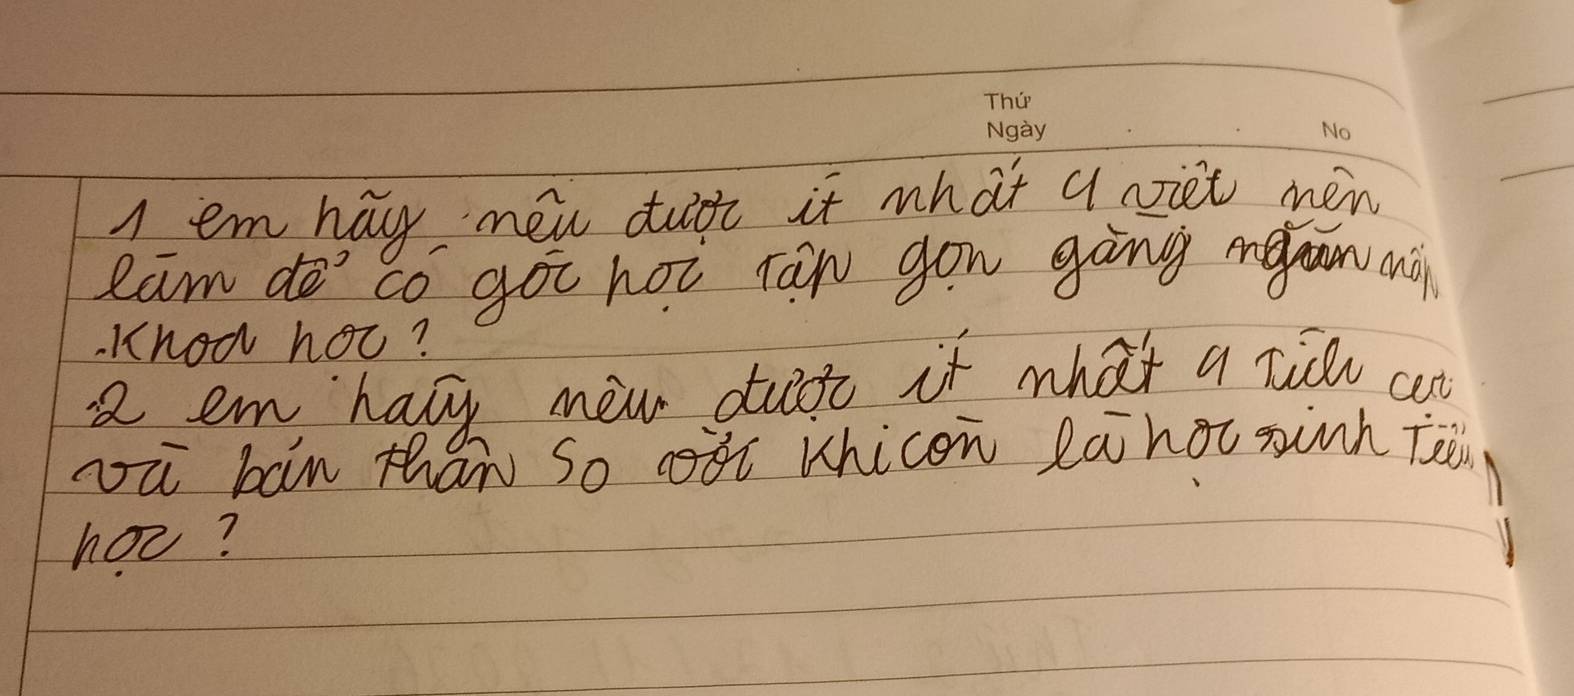 Thứ
Ngày No
1 em hãy nêu được ít nhất 4 việt nên
làm để có góc học tập gọn gàng ngăn nắp
khoa học?
2 em hãy nêu được ít nhất 4 tích cực
và bản thân so với khi còn là học sinh Tiểu
học?